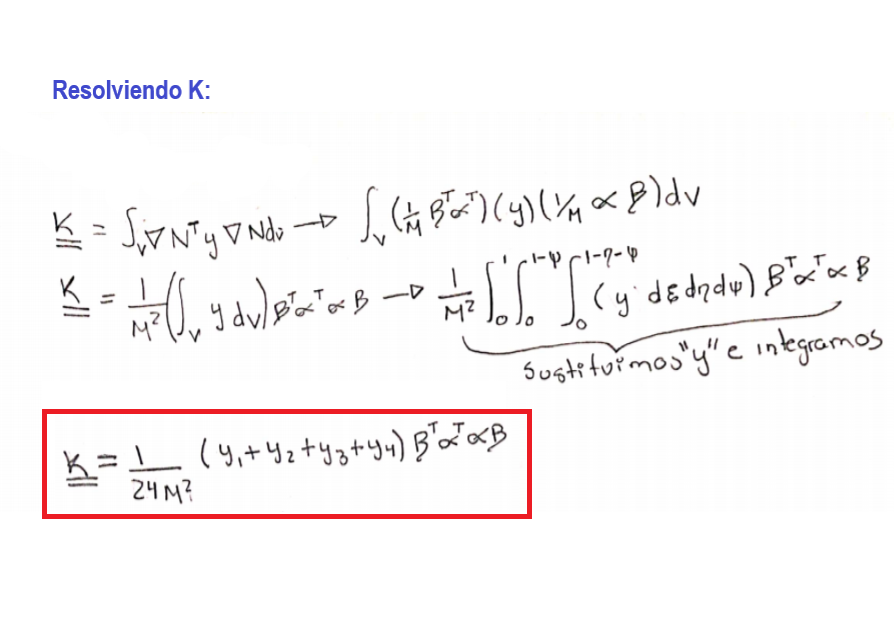 Resolviendo K:
K = ∫_V ∇N^T y ∇N dv → ∫_V (1/M B^T α^T)(y)(1/M α B)dv
K = 1/M² (∫_V y dv) B^T α^T α B → 1/M² ∫_0^1 ∫_0^{1-ψ} ∫_0^{1-η-ψ} (y dε dη dψ) B^T α^T α B
Sustituimos "y" e integramos
K = 1/24M² (y₁+y₂+y₃+y₄) B^T α^T α B